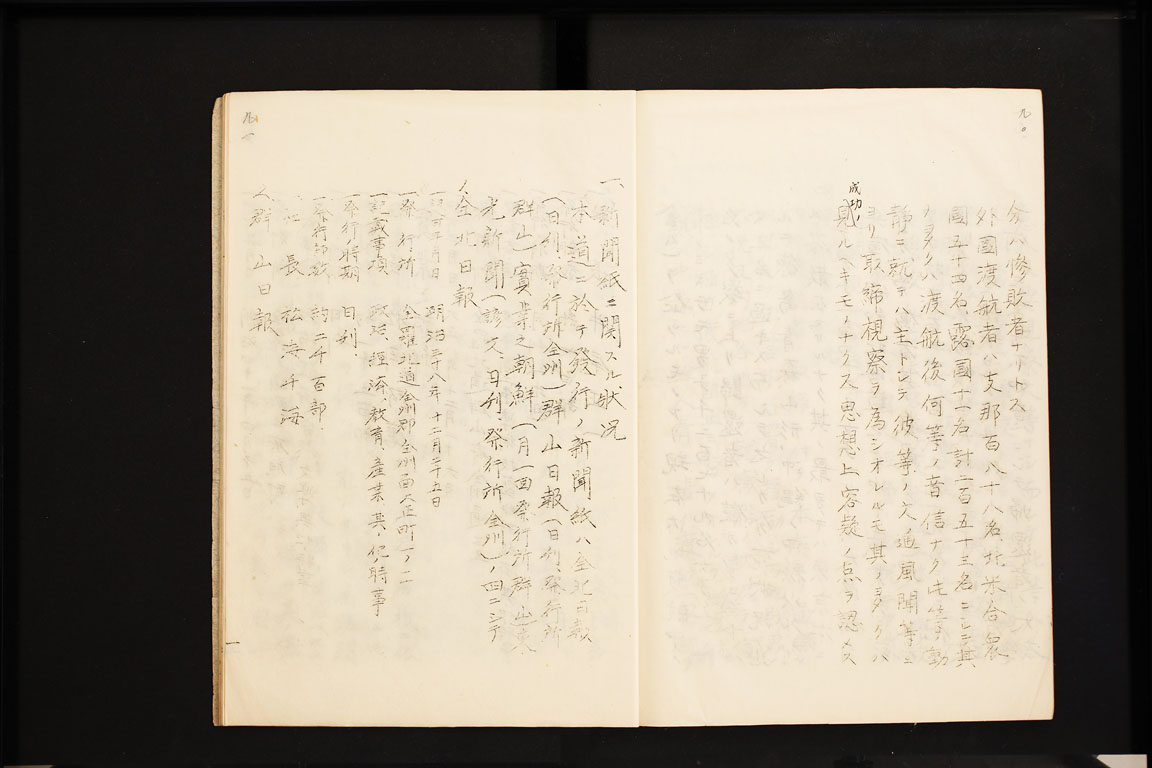 九〇
今ハ惨敗者ナリトス
外國渡航者ハ支那百八十八名、北米合衆
國五十四名露國十一名計二百五十三名ニシテ其
ノ多クハ渡航後何等ノ音信ナク此等動
静ニ就テハ主トシテ彼等ノ文通風聞等ニ
ヨリ取締視察ヲ為シオレルモ其ノ多クハ
成功ノ
見ルヘキモノナクス思想上容疑ノ点ヲ認メ
九一
一、新聞紙ニ関スル状况
本道ニ於テ發行ノ新聞紙ハ全北日報
(日刊、發行所全州)群山日報(日刊發行所
群山)實業之朝鮮(月一回發行所群山)東
光新聞(諺文、日刊、發行所全州)ノ四ニシテ
イ、全北日報
一、年月日 明治三十八年十二月二十五日
一、發行所 全羅北道全州郡全州面大正町一ノ二
一、記載事項 政治、經済、教育、産業其ノ他時事
一、發行ノ時期 日刊、
一、發行部数 約二千百部、
一、社長 松海千海
群山日報